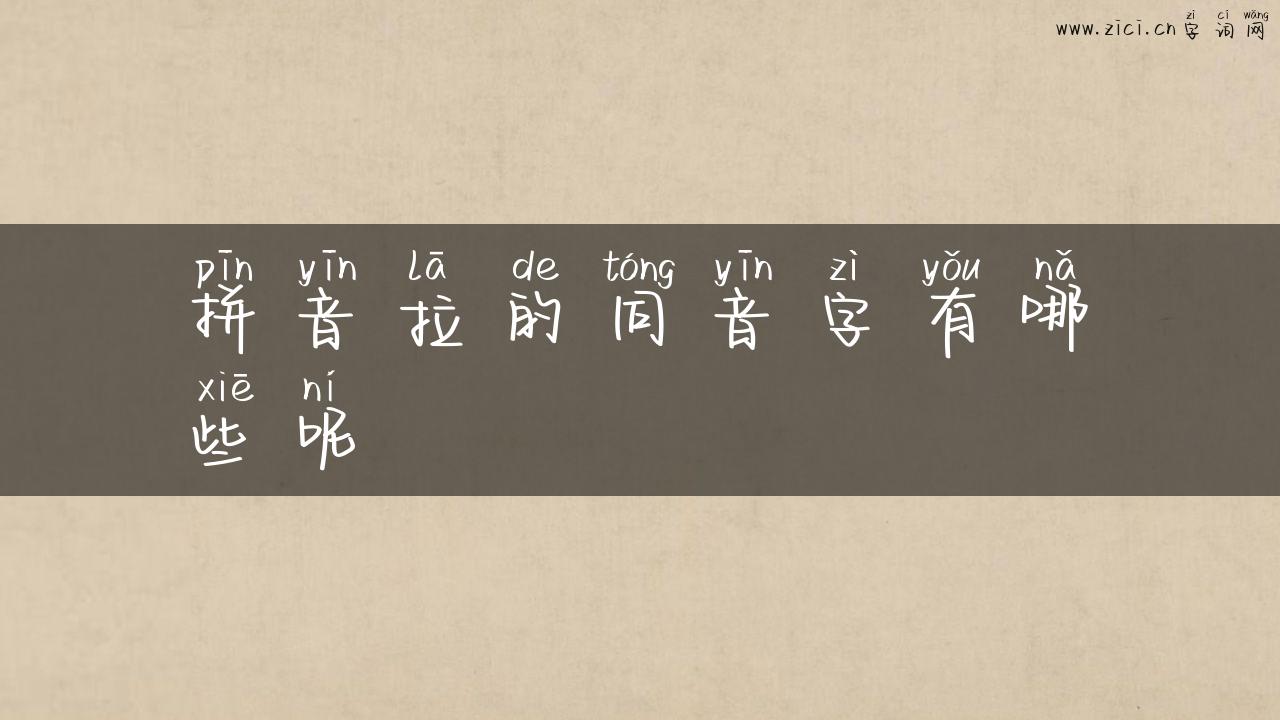 zì cí wǎng
www.zici.cn字词网
pīn yīn lā de tóng yīn zì yǒu nǎ
拼音拉的同音字有哪
xiē ní
些呢